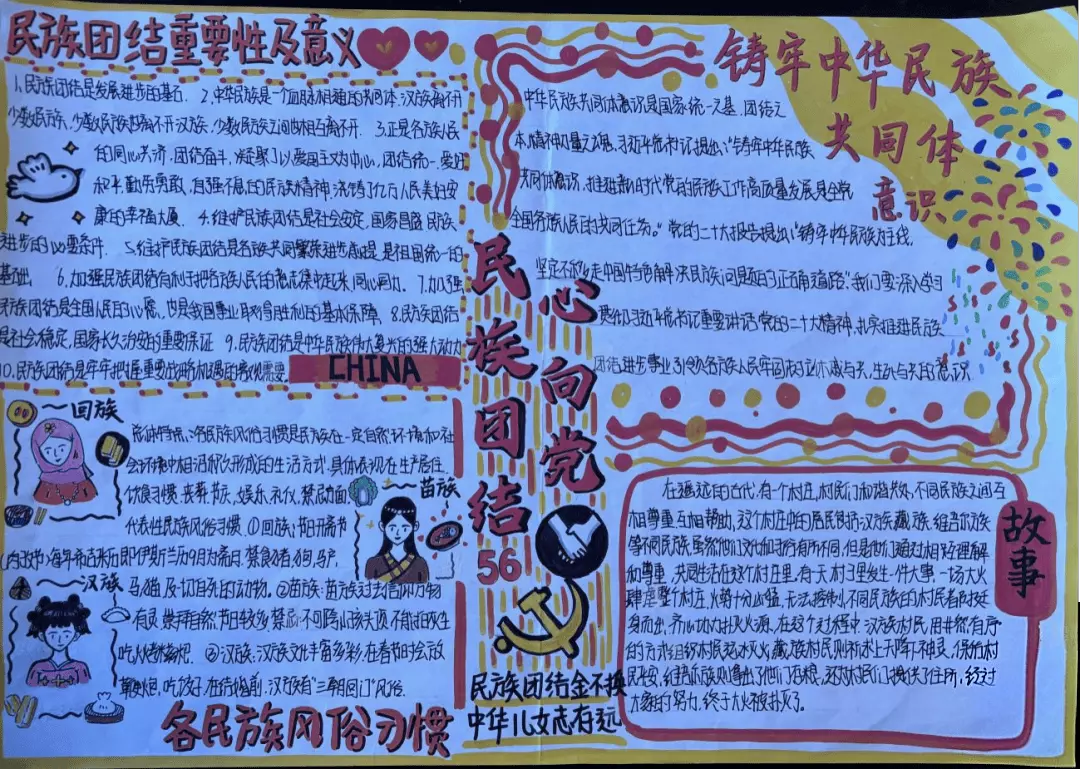 民族团结重要性及意义
1.民族团结是发展进步的基石. 2.中华民族是一个血脉相通的共同体.汉族离不开
少数民族、少数民族离不开汉族、少数民族之间也相互离不开. 3.正是各族人民
的同心共济,团结奋斗,凝聚了以爱国主义为中心,团结统一、爱好
和平、勤劳勇敢、自强不息的民族精神,浇铸了亿万人民美好安
康的幸福大厦. 4.维护民族团结是社会安定、国家昌盛、民族
进步的必要条件. 5.维护民族团结是各族共同繁荣进步前提,是祖国统一的
基础. 6.加强民族团结有利于把各族人民的意志集中起来,同心同力. 7.加强
民族团结是全国人民的心愿、也是我国事业取得胜利的基本保障. 8.民族团结
是社会稳定、国家长久治安的重要保证. 9.民族团结是中华民族伟大复兴的强大动力
10.民族团结是牢牢把握重要战略机遇的客观需要.
CHINA
铸牢中华民族
共同体
意识
中华民族共同体意识是国家统一之基、团结之
本、精神力量之魂.习近平总书记提出:“铸牢中华民族
共同体意识、推进新时代党的民族工作高质量发展是全党
全国各族人民的共同任务.”党的二十大报告提出:“铸牢中华民族为主线,
坚定不移走中国特色解决民族问题的正确道路.”我们要深入学习
贯彻习近平总书记重要讲话党的二十大精神,扎实推进民族
团结进步事业,引领各族人民牢固树立休戚与共、生死与共的意识.
民族团结
心向党
56
民族团结金不换
中华儿女志存远
回族
苗族
汉族
总体特点:各民族风俗习惯是民族在一定自然环境和社
会环境中相沿积久形成的生活方式,具体表现在生产居住、
饮食习惯、丧葬、节庆、娱乐、礼仪、禁忌方面
代表性民族风俗习惯.①回族:节日开斋节
禁食
马猫及一切自死的动物。②苗族:苗族过去信仰万物
有灵、崇拜自然,节日较多,禁忌:不可跨小孩头顶、不能
③汉族:汉族文化丰富多彩,在春节时会放
鞭炮、吃饺子,在结婚前,汉族有“三朝回门”风俗.
各民族风俗习惯
故事
在遥远的古代,有一个村庄,村民们和谐共处,不同民族之间互
相尊重、互相帮助.这个村庄中的居民包括汉族、藏族、维吾尔族
等不同民族.虽然他们文化和习俗有所不同,但是他们通过相互理解
和尊重,共同生活在这个村庄里.有一天,村子里发生一件大事.一场大火
肆虐整个村庄,火势十分凶猛,无法控制.不同民族的村民看到挺
身而出,齐心协力扑灭火源.在这个过程中,汉族村民用井然有序
的方式组织村民运水灭火,藏族村民则祈求上天降下神灵,保佑村
民平安,维吾尔族则拿出了他们的粮,还对村民们提供了住所,经过
大家的努力,终于大火被扑灭了.